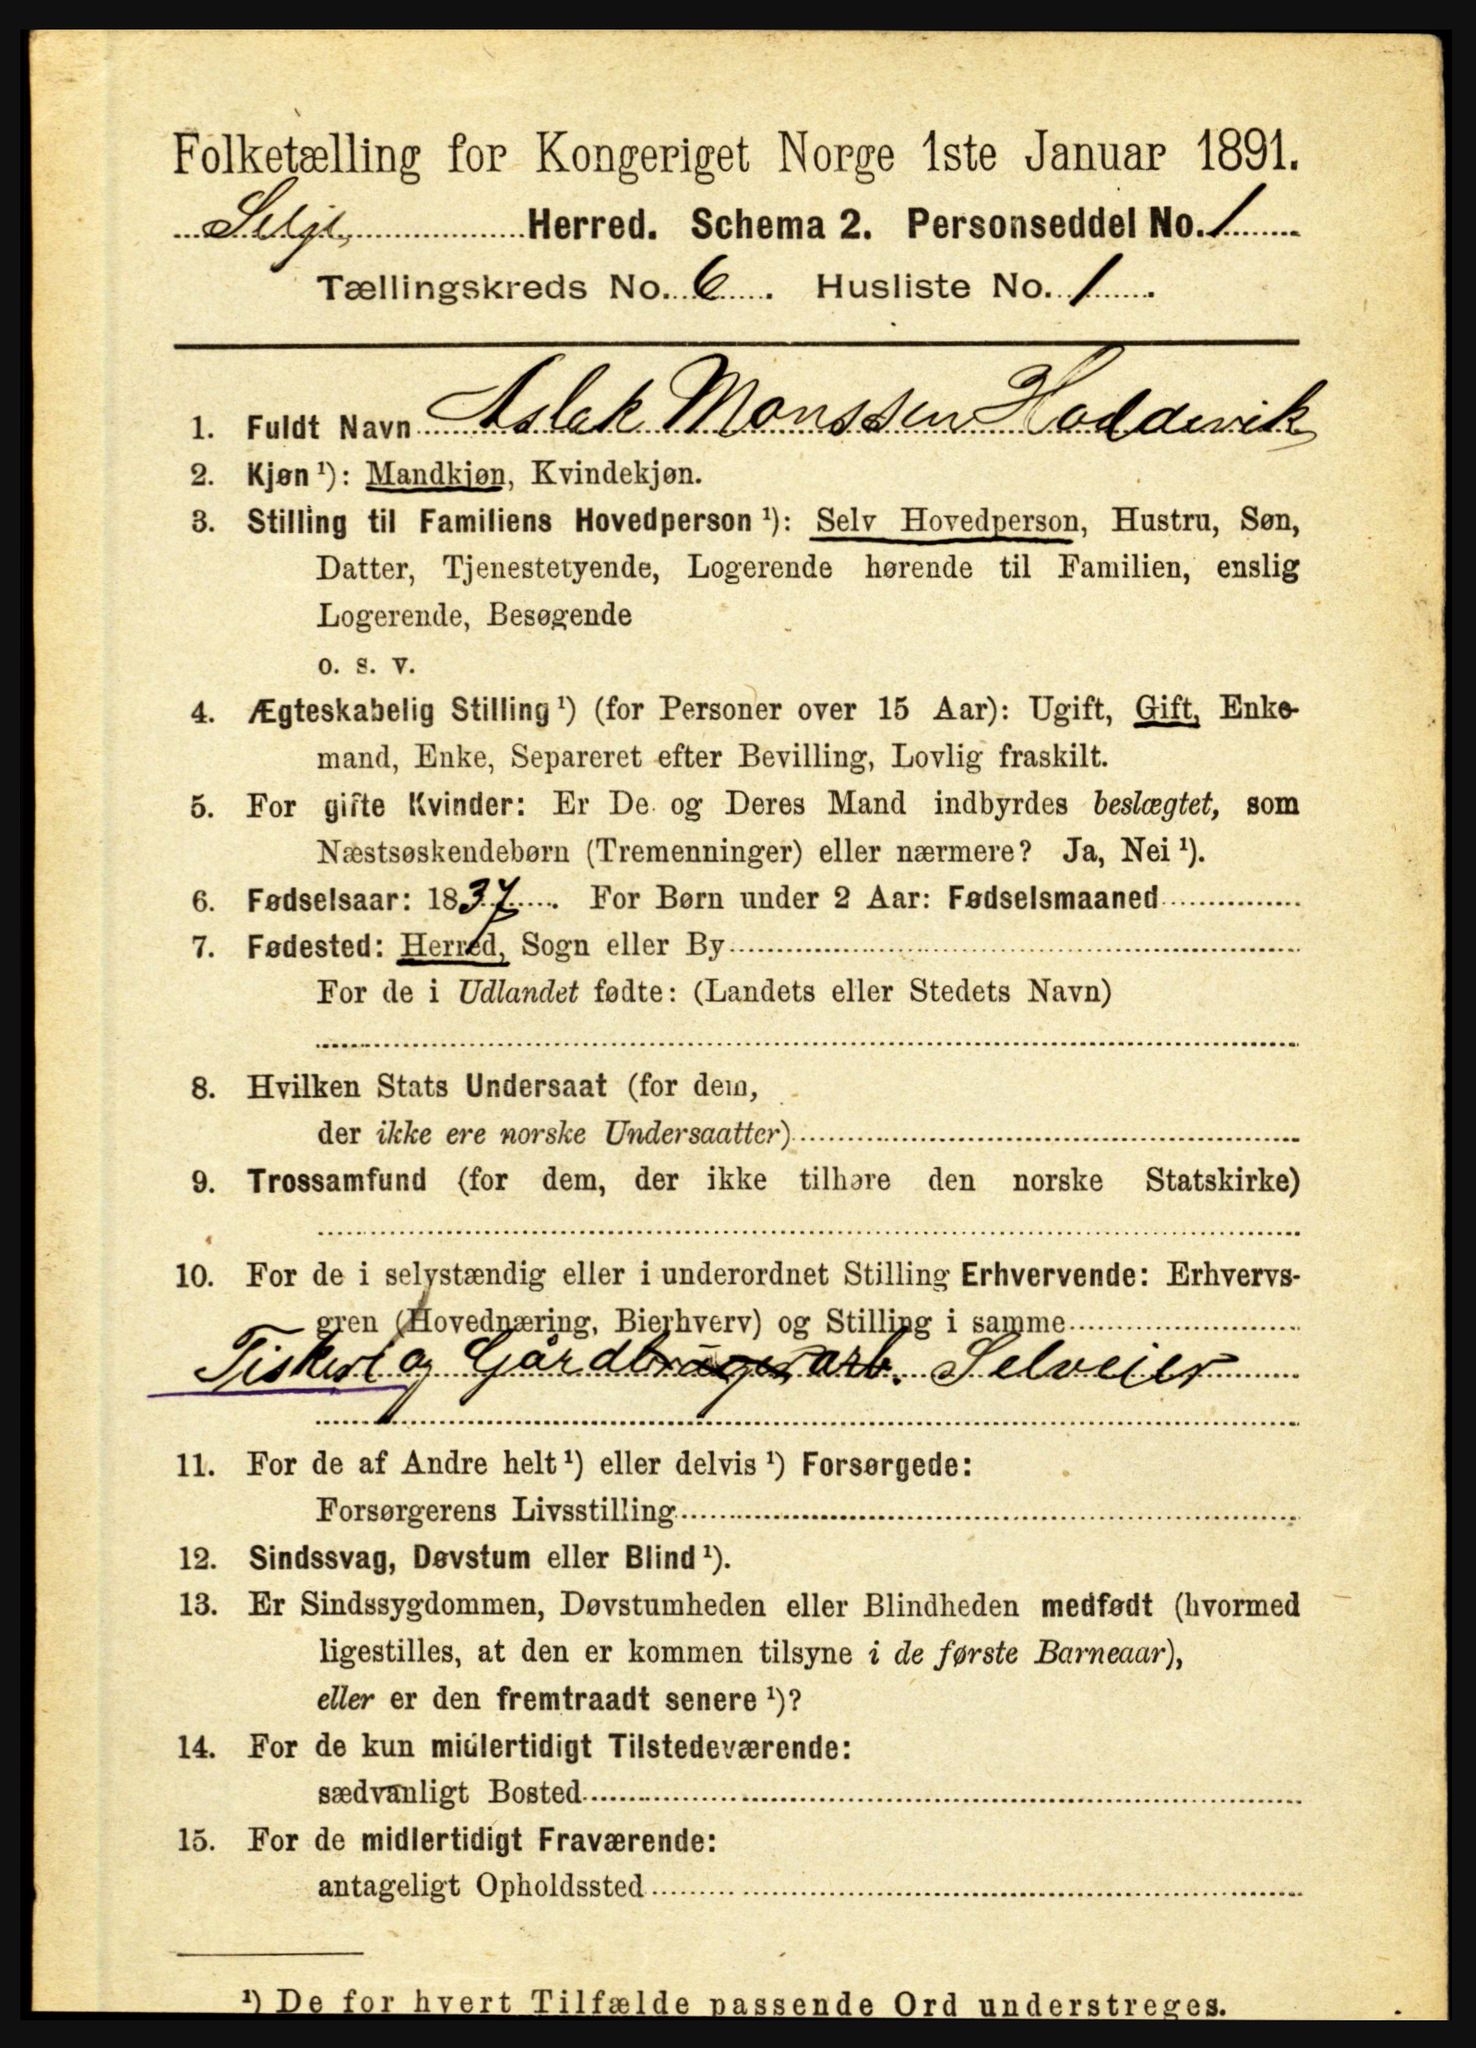 Folketælling for Kongeriget Norge 1ste Januar 1891.
Selje Herred. Schema 2. Personseddel No. 1
Tællingskreds No. 6. Husliste No. 1.
1. Fuldt Navn Aslak Monssen Hoddevik
2. Kjøn ¹): Mandkjøn, Kvindekjøn.
3. Stilling til Familiens Hovedperson ¹): Selv Hovedperson, Hustru, Søn,
Datter, Tjenestetyende, Logerende hørende til Familien, enslig
Logerende, Besøgende
o. s. v.
4. Ægteskabelig Stilling ¹) (for Personer over 15 Aar): Ugift, Gift, Enke-
mand, Enke, Separeret efter Bevilling, Lovlig fraskilt.
5. For gifte Kvinder: Er De og Deres Mand indbyrdes beslægtet, som
Næstsøskendebørn (Tremenninger) eller nærmere? Ja, Nei ¹).
6. Fødselsaar: 1837. For Børn under 2 Aar: Fødselsmaaned
7. Fødested: Herred, Sogn eller By
For de i Udlandet fødte: (Landets eller Stedets Navn)
8. Hvilken Stats Undersaat (for dem,
der ikke ere norske Undersaatter)
9. Trossamfund (for dem, der ikke tilhøre den norske Statskirke)
10. For de i selvstændig eller i underordnet Stilling Erhvervende: Erhvervs-
gren (Hovednæring, Bierhverv) og Stilling i samme
Fiskeri og Gårdbruger arb. Selveier
11. For de af Andre helt ¹) eller delvis ¹) Forsørgede:
Forsørgerens Livsstilling
12. Sindssvag, Døvstum eller Blind ¹).
13. Er Sindssygdommen, Døvstumheden eller Blindheden medfødt (hvormed
ligestilles, at den er kommen tilsyne i de første Barneaar),
eller er den fremtraadt senere ¹)?
14. For de kun midlertidigt Tilstedeværende:
sædvanligt Bosted
15. For de midlertidigt Fraværende:
antageligt Opholdssted
¹) De for hvert Tilfælde passende Ord understreges.